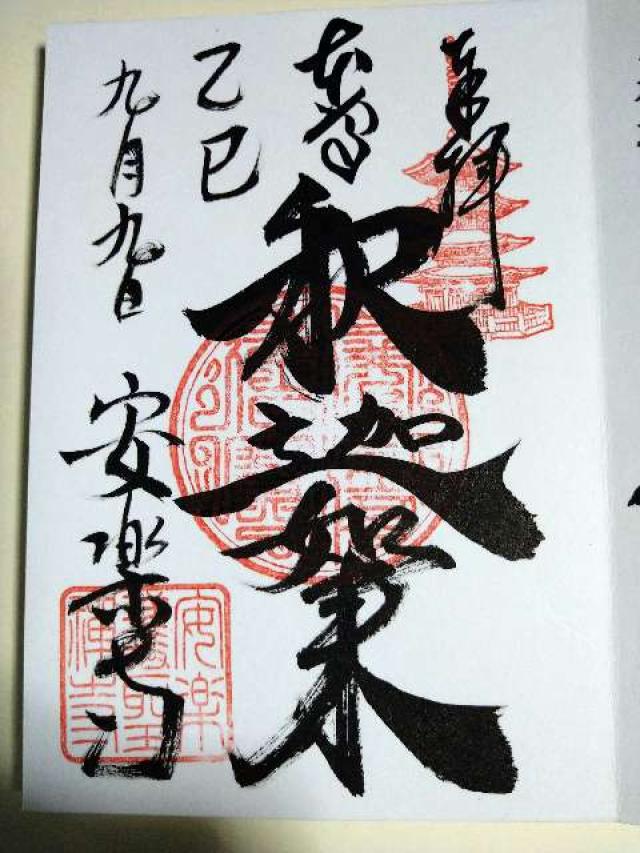 奉拝
本尊
釈迦如来
乙巳
九月九日
安楽寺
安楽
護聖
禅寺